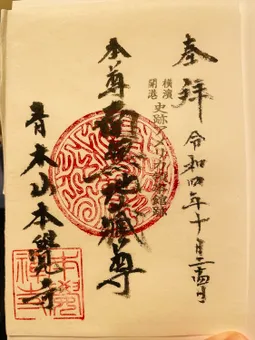 奉拝
令和四年十月二十四日
横濱開港
史跡アメリカ領事館跡
本尊
南無地蔵尊
青木山本覺寺
本覺寺